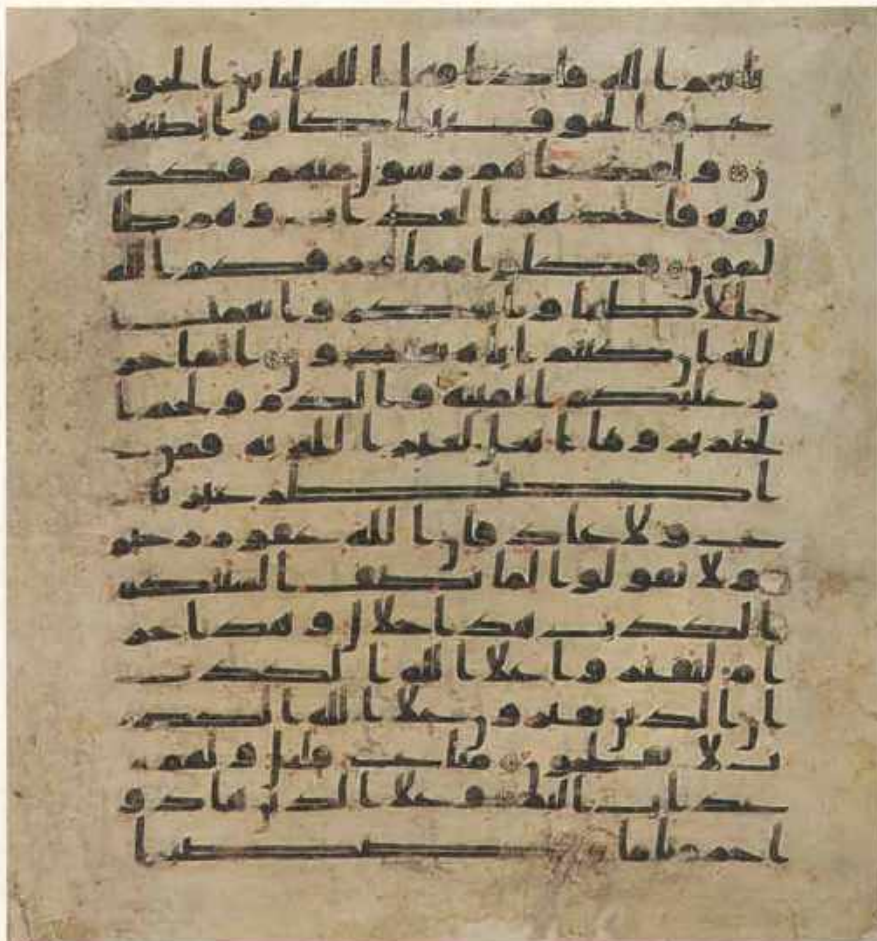 بانعم الله فاذاقها الله لباس الجو
ع والخوف بما كانوا يصنعو
ن ولقد جاهم رسول منهم فكذ
بوه فاخذهم العذاب وهم ظا
لمون فكلوا مما رزقكم الله
حلالا طيبا واشكروا نعمت ا
لله ان كنتم اياه تعبدون انما حر
م عليكم الميتة والدم ولحم ا
لخنزير وما اهل لغير الله به فمن
اضطر غير با
غ ولا عاد فان الله غفور رحيم
ولا تقولوا لما تصف السنتكم
الكذب هذا حلال وهذا حر
ام لتفتروا على الله الكذب
ان الذين يفترون على الله الكذ
ب لا يفلحون متاع قليل ولهم
عذاب اليم وعلى الذين هادو
ا حرمنا ما قصصنا